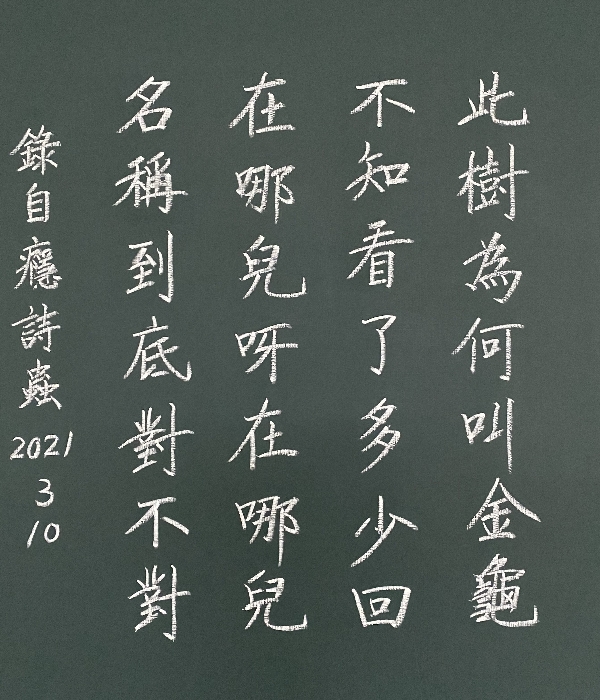 此樹為何叫金龜
不知看了多少回
在哪兒呀在哪兒
名稱到底對不對
錄自癮詩蟲
2021
3
10